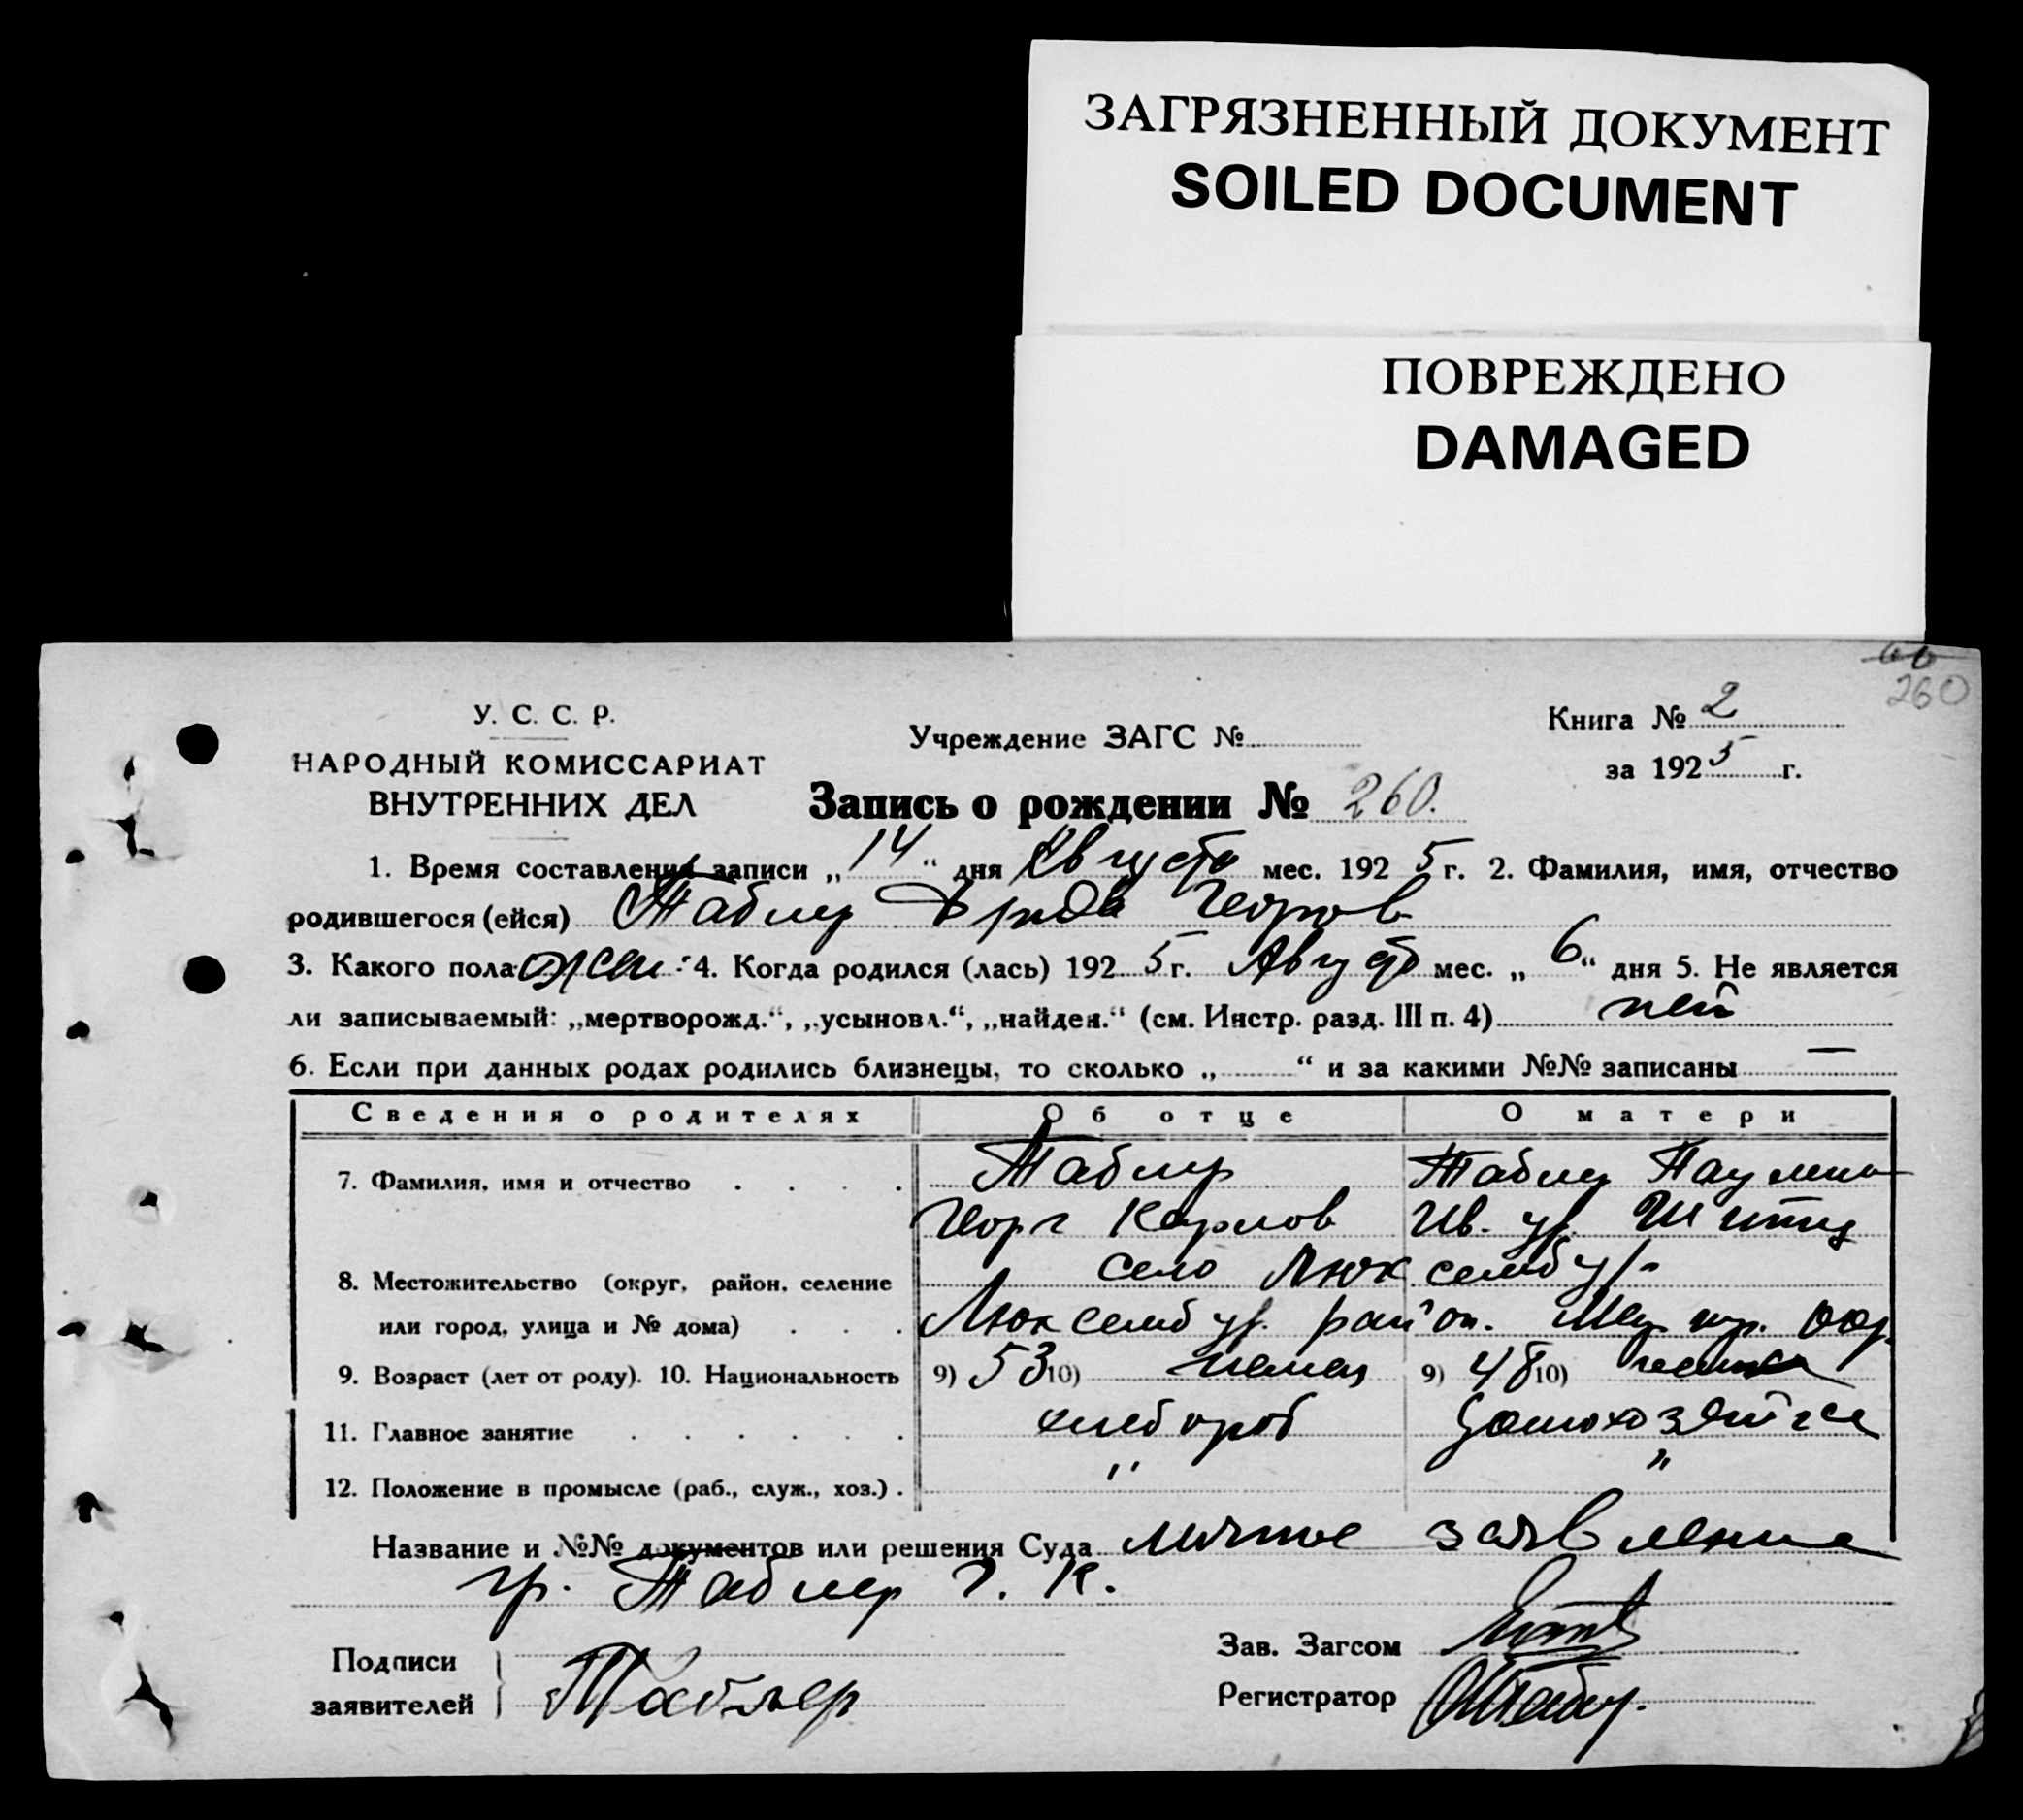 ЗАГРЯЗНЕННЫЙ ДОКУМЕНТ
SOILED DOCUMENT
ПОВРЕЖДЕНО
DAMAGED
260
У. С. С. Р.
НАРОДНЫЙ КОМИССАРИАТ
ВНУТРЕННИХ ДЕЛ
Учреждение ЗАГС №
Книга № 2
за 1925 г.
Запись о рождении № 260.
1. Время составления записи „14“ дня Августа мес. 1925 г. 2. Фамилия, имя, отчество
родившегося (ейся) Таблер Фрида Георгов
3. Какого пола жен. 4. Когда родился (лась) 1925 г. Августа мес. „6“ дня 5. Не является
ли записываемый: „мертворожд.“, „усыновл.“, „найден.“ (см. Инстр. разд. III п. 4) нет
6. Если при данных родах родились близнецы, то сколько „ “ и за какими №№ записаны —
Сведения о родителях Об отце О матери
7. Фамилия, имя и отчество Таблер Таблер Паулина
Георг Карлов Ив. ур.
8. Местожительство (округ, район, селение село Люксембург
или город, улица и № дома) Люксембур. район.
9. Возраст (лет от роду). 10. Национальность 9) 53 10) немец 9) 48 10) немка
11. Главное занятие хлебороб домохозяйка
12. Положение в промысле (раб., служ., хоз.) " "
Название и №№ документов или решения Суда личное заявление
гр. Таблер Г. К.
Подписи
заявителей Таблер
Зав. Загсом
Регистратор